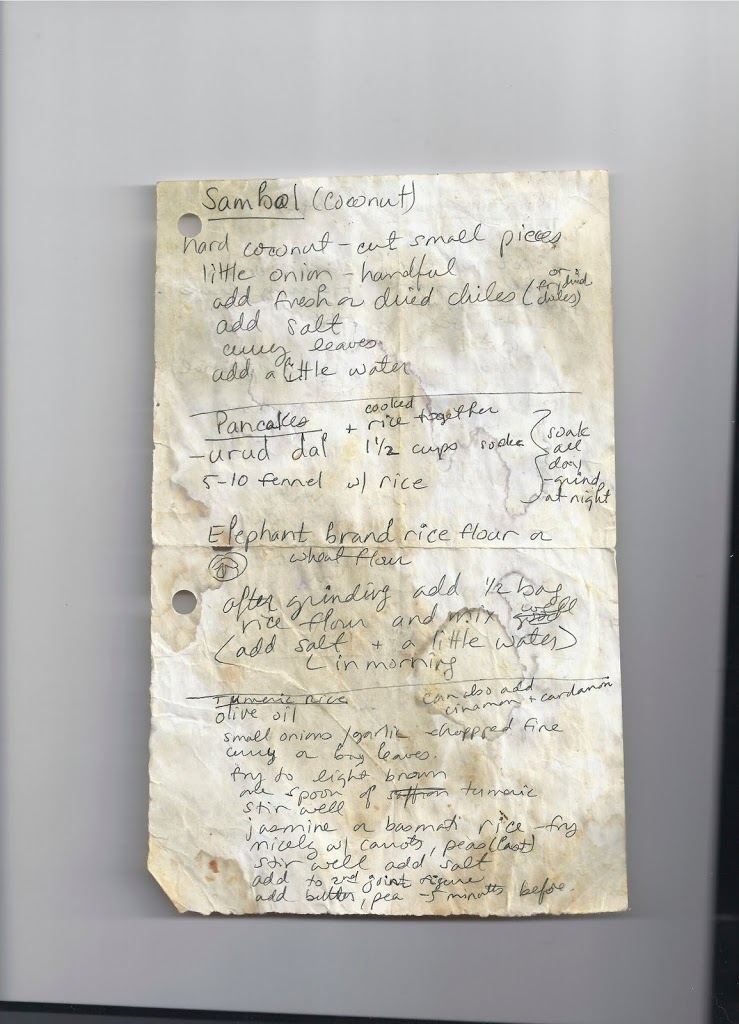 Sambol (coconut)
hard coconut - cut small pieces
little onion - handful
add fresh or dried chiles (or dried chiles)
add salt
curry leaves
add a little water
Pancakes + cooked rice together
- urud dal 1 1/2 cups soaks
5-10 fennel w/ rice
soak
all
day
- grind
at night
Elephant brand rice flour or
wheat flour
after grinding add 1/2 bag
rice flour and mix well
(add salt + a little water)
in morning
Tumeric rice
can also add
cinamon + cardamon
olive oil
small onions / garlic - choppped fine
curry or bay leaves.
fry to light brown
one spoon of saffron tumeric
stir well
jasmine or basmati rice - fry
nicely w/ carrots, peas (last)
stir well add salt
add to 2nd joint
add butter, pea - 5 minutes before.